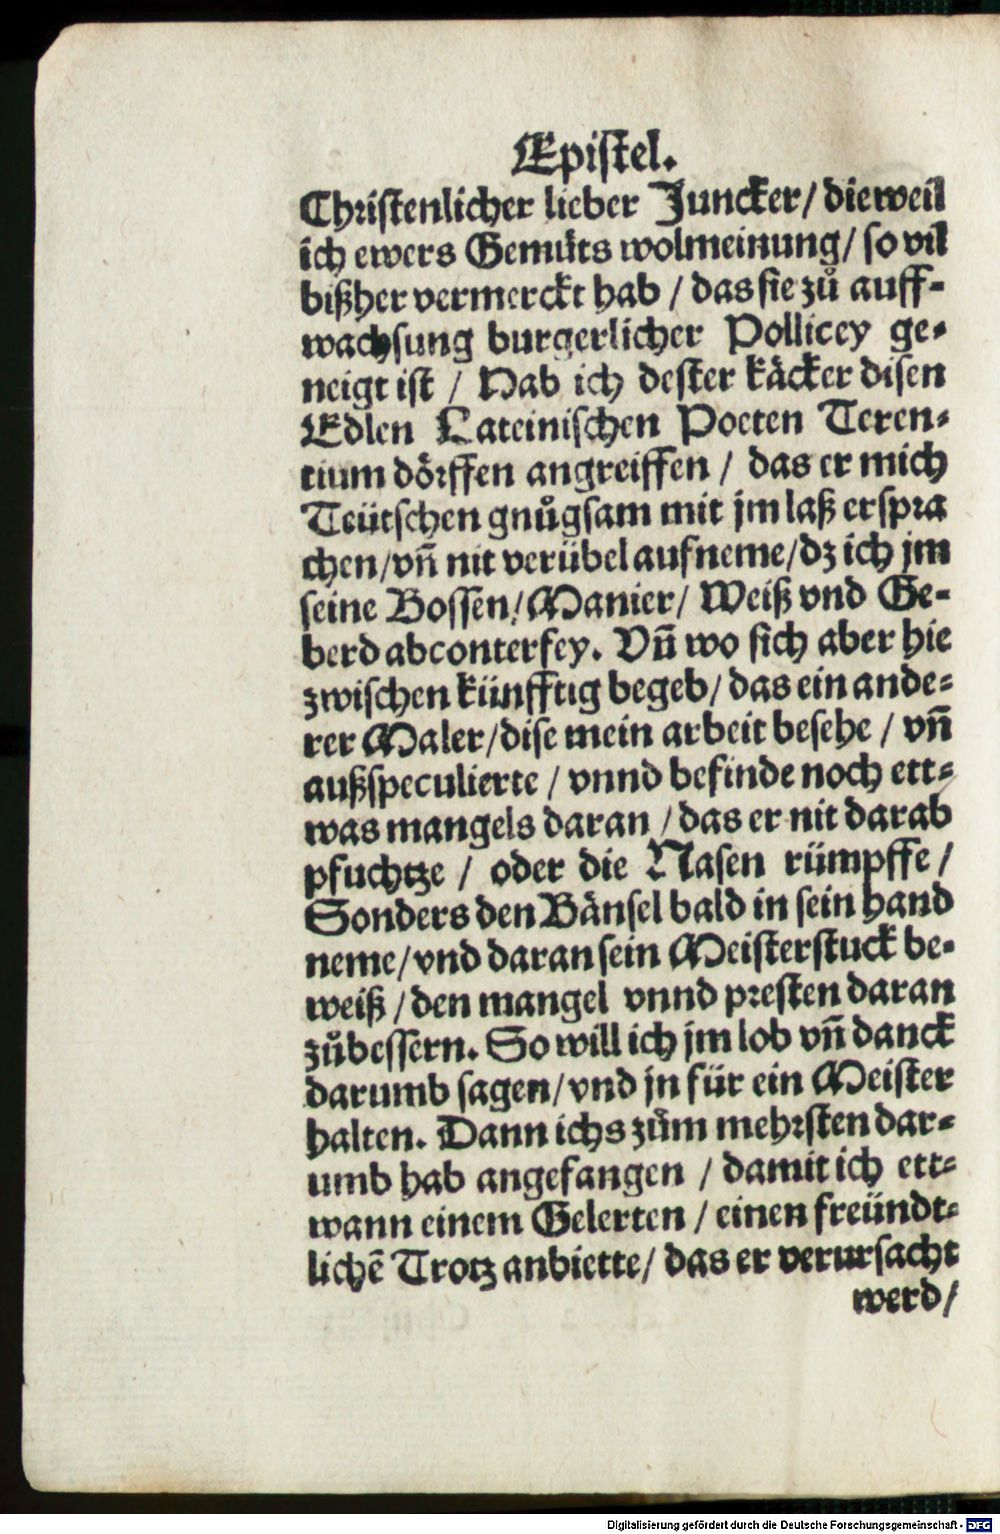 Epistel.
Christenlicher lieber Juncker/ dieweil
ich ewers Gemuͤts wolmeinung/ so vil
bißher vermerckt hab / das sie zů auff-
wachsung burgerlicher Pollicey ge-
neigt ist / Hab ich dester kaͤcker disen
Edlen Lateinischen Poeten Teren-
tium doͤrffen angreiffen / das er mich
Teütschen gnůgsam mit jm laß erspra
chen/vñ nit verübel aufneme/dz ich jm
seine Bossen/Manier/ Weiß vnd Ge-
berd abconterfey. Vñ wo sich aber hie
zwischen künfftig begeb/ das ein ande-
rer Maler/dise mein arbeit besehe / vñ
außspeculierte / vnnd befinde noch ett-
was mangels daran / das er nit darab
pfuchtze / oder die Nasen rümpffe /
Sonders den Bänsel bald in sein hand
neme/vnd daran sein Meisterstuck be-
weiß / den mangel vnnd presten daran
zůbessern. So will ich jm lob vñ danck
darumb sagen/vnd jn für ein Meister
halten. Dann ichs zům mehrsten dar-
umb hab angefangen / damit ich ett-
wann einem Gelerten / einen freündt-
lichẽ Trotz anbiette/ das er verursacht
werd/
Digitalisierung gefördert durch die Deutsche Forschungsgemeinschaft - DFG